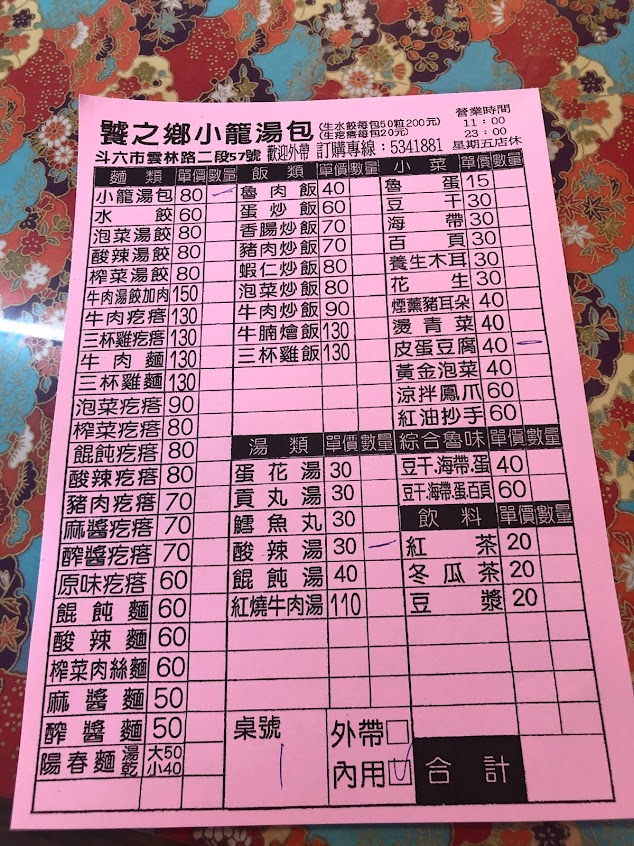 饕之鄉小龍湯包
(生水餃每包50粒200元)
(生疙瘩每包20元)
營業時間
11：00
23：00
星期五店休
斗六市雲林路二段57號 歡迎外帶 訂購專線：5341881
麵類 單價 數量
小龍湯包 80
水餃 60
泡菜湯餃 80
酸辣湯餃 80
榨菜湯餃 80
牛肉湯餃加肉 150
牛肉疙瘩 130
三杯雞疙瘩 130
牛肉麵 130
三杯雞麵 130
泡菜疙瘩 90
榨菜疙瘩 80
餛飩疙瘩 80
酸辣疙瘩 80
豬肉疙瘩 70
麻醬疙瘩 70
醡醬疙瘩 70
原味疙瘩 60
餛飩麵 60
酸辣麵 60
榨菜肉絲麵 60
麻醬麵 50
醡醬麵 50
陽春麵 湯 大50
乾 小40
飯類 單價 數量
魯肉飯 40
蛋炒飯 60
香腸炒飯 70
豬肉炒飯 70
蝦仁炒飯 80
泡菜炒飯 80
牛肉炒飯 90
牛腩燴飯 130
三杯雞飯 130
湯類 單價 數量
蛋花湯 30
貢丸湯 30
鱈魚丸 30
酸辣湯 30
餛飩湯 40
紅燒牛肉湯 110
小菜 單價 數量
魯蛋 15
豆干 30
海帶 30
百頁 30
養生木耳 30
花生 30
煙薰豬耳朵 40
燙青菜 40
皮蛋豆腐 40
黃金泡菜 40
涼拌鳳爪 60
紅油抄手 60
綜合魯味 單價 數量
豆干.海帶.蛋 40
豆干.海帶.蛋.百頁 60
飲料 單價 數量
紅茶 20
冬瓜茶 20
豆漿 20
桌號
1
外帶
內用
合計